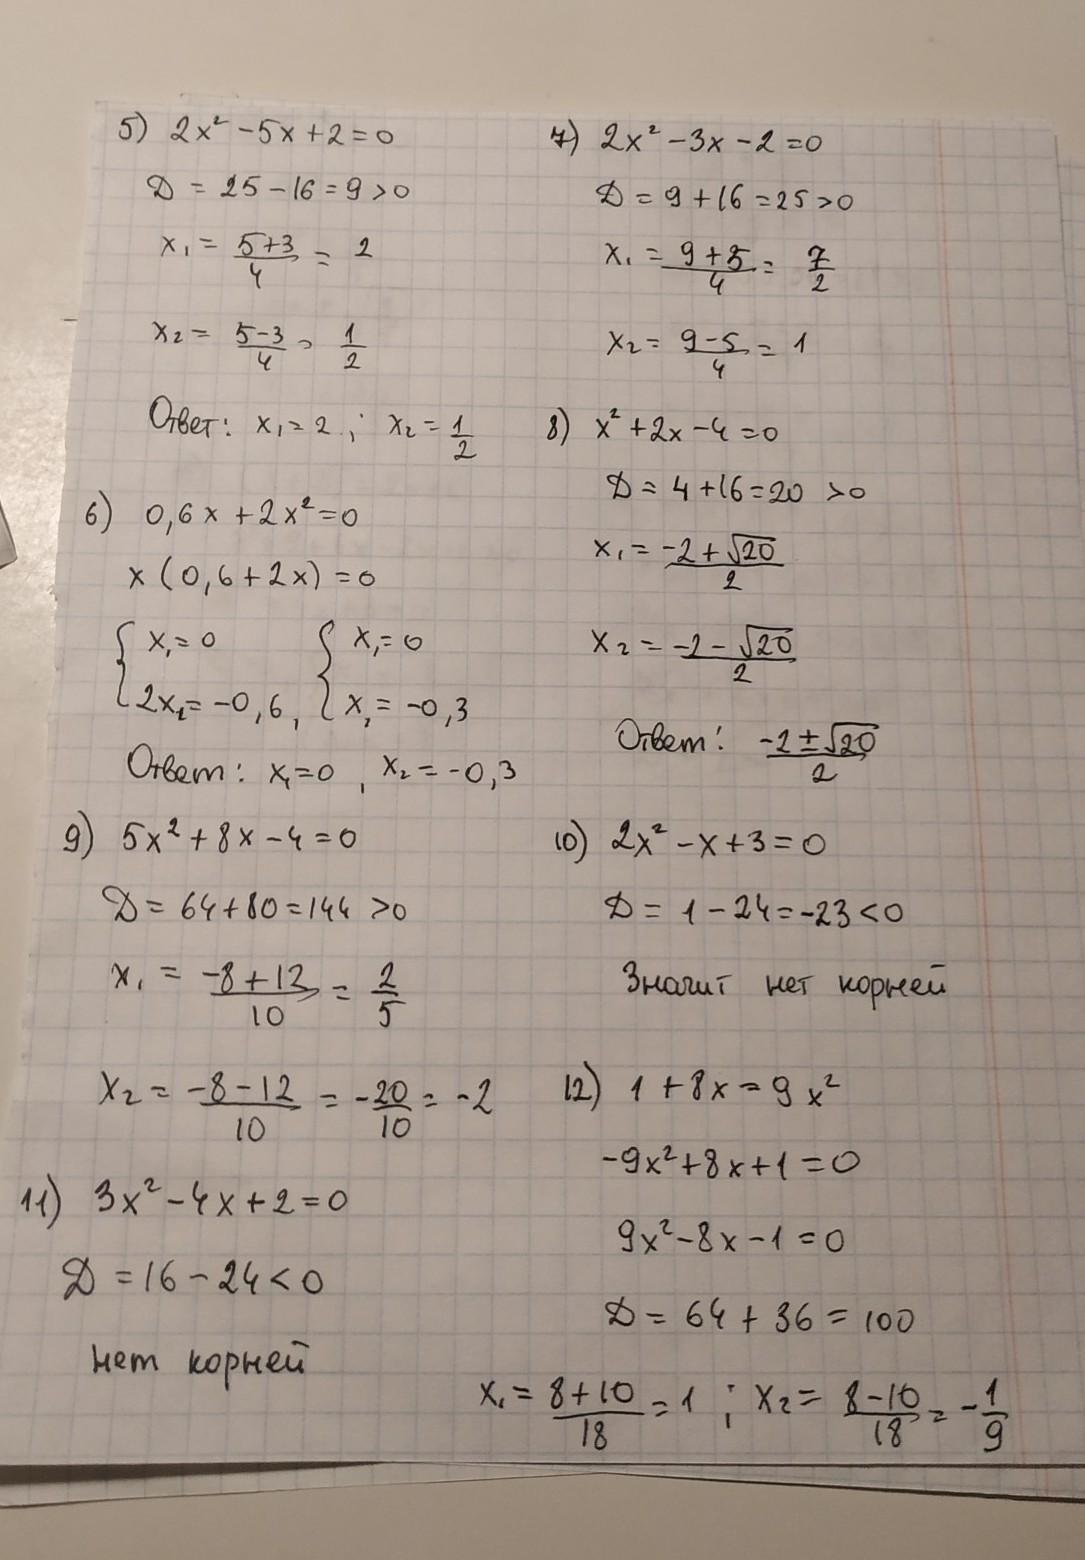 5) 2x² - 5x + 2 = 0
Д = 25 - 16 = 9 > 0
x₁ = (5+3)/4 = 2
x₂ = (5-3)/4 = 1/2
Ответ: x₁ = 2 ; x₂ = 1/2
6) 0,6x + 2x² = 0
x (0,6 + 2x) = 0
{ x₁ = 0 { x₁ = 0
{ 2x₂ = -0,6, { x₂ = -0,3
Ответ: x₁ = 0 , x₂ = -0,3
7) 2x² - 3x - 2 = 0
Д = 9 + 16 = 25 > 0
x₁ = (9+5)/4 = 7/2
x₂ = (9-5)/4 = 1
8) x² + 2x - 4 = 0
Д = 4 + 16 = 20 > 0
x₁ = (-2 + √20)/2
x₂ = (-2 - √20)/2
Ответ: (-2 ± √20)/2
9) 5x² + 8x - 4 = 0
Д = 64 + 80 = 144 > 0
x₁ = (-8 + 12)/10 = 2/5
x₂ = (-8 - 12)/10 = -20/10 = -2
10) 2x² - x + 3 = 0
Д = 1 - 24 = -23 < 0
Значит нет корней
11) 3x² - 4x + 2 = 0
Д = 16 - 24 < 0
нет корней
12) 1 + 8x = 9x²
-9x² + 8x + 1 = 0
9x² - 8x - 1 = 0
Д = 64 + 36 = 100
x₁ = (8+10)/18 = 1 ; x₂ = (8-10)/18 = -1/9